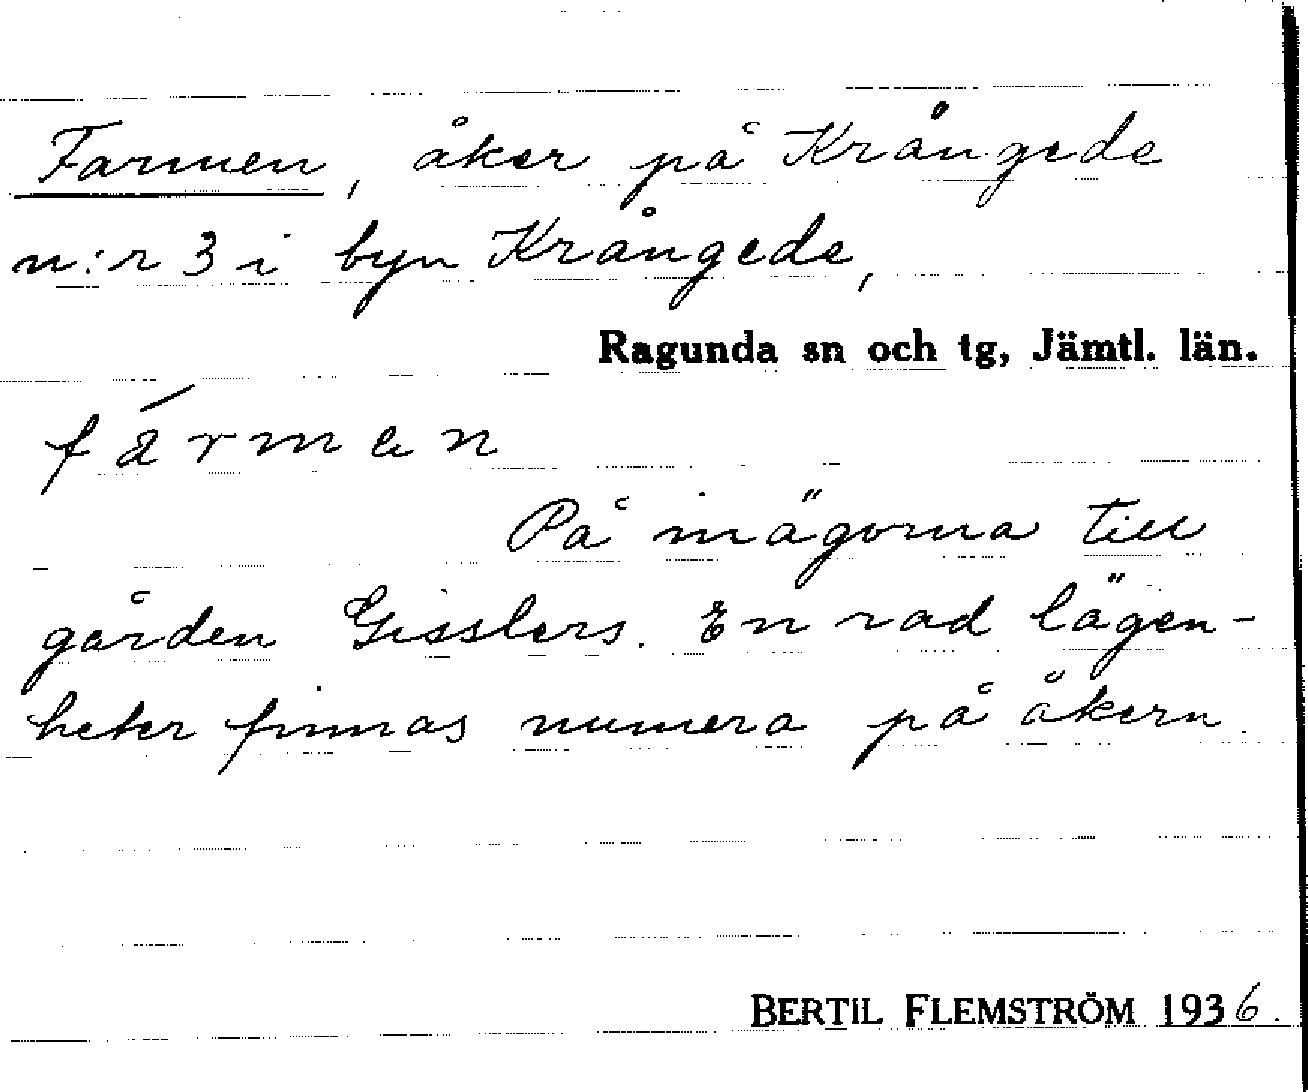 Farmen, åker på Krångede
n:r 3 i byn Krångede,
Ragunda sn och tg, Jämtl. län.
fármen
På inägorna till
gården Gisslers. En rad lägen-
heter finnas numera på åkern.
BERTIL FLEMSTRÖM 1936.